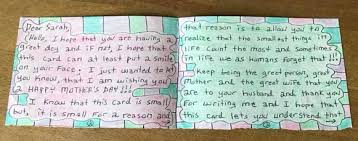 Dear Sarah,
(Hello, I hope that you are having a
great day and if not, I hope that
this card can at least put a smile
on your face. I just wanted to let
you know, that I am wishing you
a HAPPY MOTHER'S DAY!!!
I know that this card is small
but, it is small for a reason and
that reason is to allow you to
realize that the smallest things in
life count the most and sometimes
in life we as humans forget that!!!
Keep being the great person, great
mother and the great wife that you
are to your husband and thank you
for writing me and I hope that
this card lets you understand that